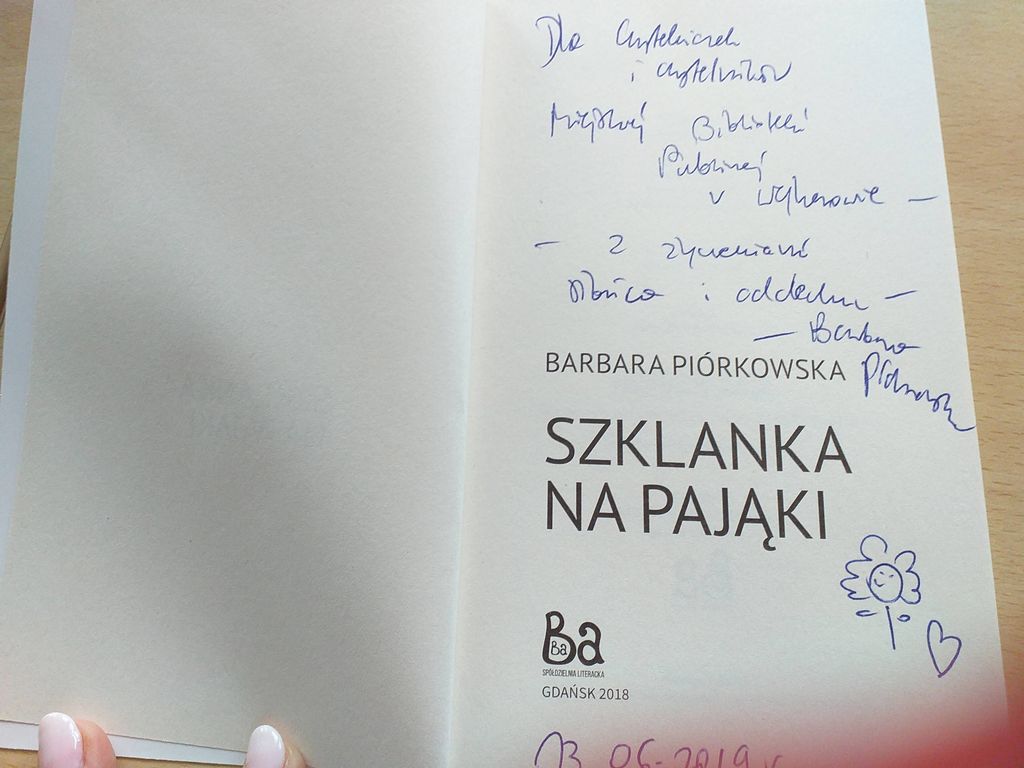 Dla Czytelniczek
i czytelników
Miejskiej Biblioteki
Publicznej
w Wejherowie —
— z życzeniami
słońca i oddechu —
— Barbara
Piórkowska
BARBARA PIÓRKOWSKA
SZKLANKA
NA PAJĄKI
Ba
Ba
SPÓŁDZIELNIA LITERACKA
GDAŃSK 2018
13.06.2019 r.